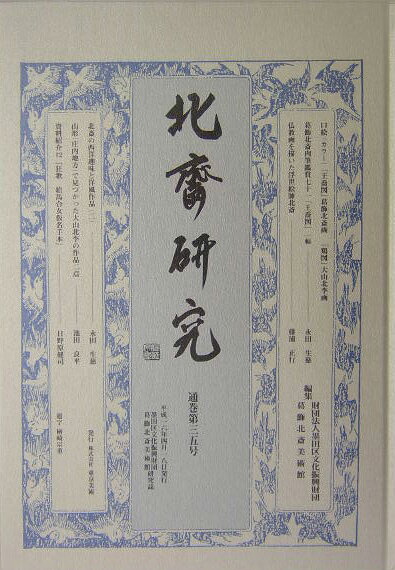 口絵・カラー「王喬図」葛飾北斎画 「鶏図」大山北李画
葛飾北斎肉筆鑑賞七十一「王喬図」一幅 永田 生慈
仏教画を描いた浮世絵師北斎 藤浦 正行
編集 財団法人墨田区文化振興財団
葛飾北斎美術館
北齋研究
通巻第三五号
平成一六年四月一八日発行
墨田区文化振興財団
葛飾北斎美術館研究誌
北斎の西洋趣味と洋風作品(二) 永田 生慈
山形・庄内地方で見つかった大山北李の作品二点 池田 良平
資料紹介 日野原健司
発行 株式会社 東京美術
題字 楢崎宗重